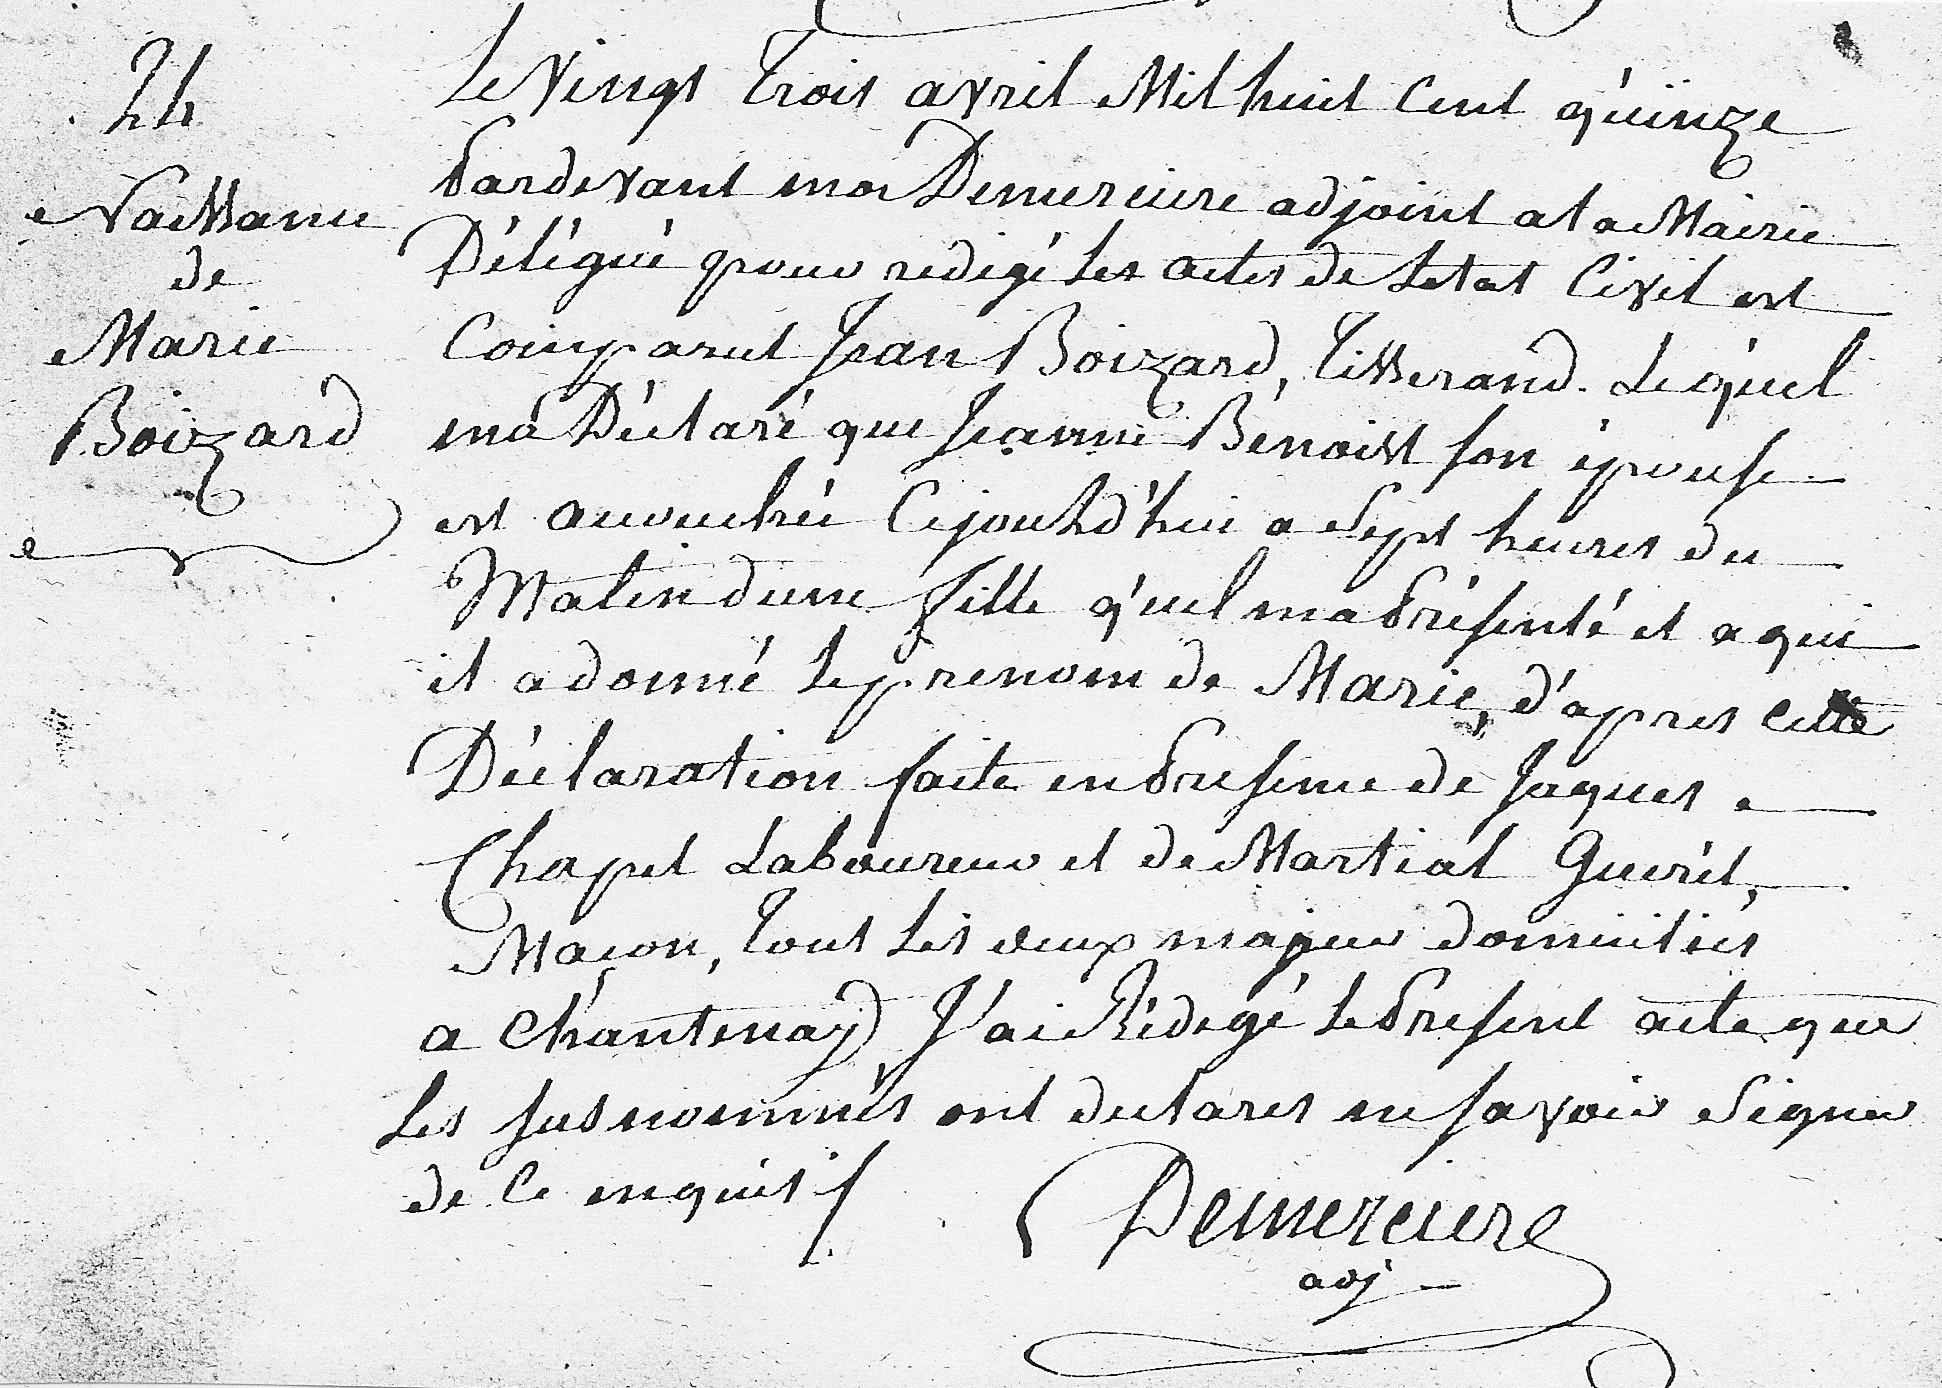 24
Naissance
de
Marie
Boizard
Le Vingt Trois avril Mil huit Cent quinze
Pardevant moi Demerciere adjoint a la Mairie
Délégué pour redigé les actes de Letat Civil est
Comparut Jean Boizard, Tisserand. Lequel
má Déclaré que Jeanne Bénoist son épouse
est accouchée Cejourd'hui a Sept heures du
Matin dune fille quel ma Présenté et a qui
il a donné le prenom de Marie, d'apres cette
Déclaration faite en Presence de Jaques
Chapel Laboureur et de Martial Gueril,
Maçon, Tous les deux majeur domiciliés
a Chantenay J'ai Rédegé le Present acte que
Les susnommés ont declares ne savoir Signer
de Ce enquis /.
Demerciere
adj